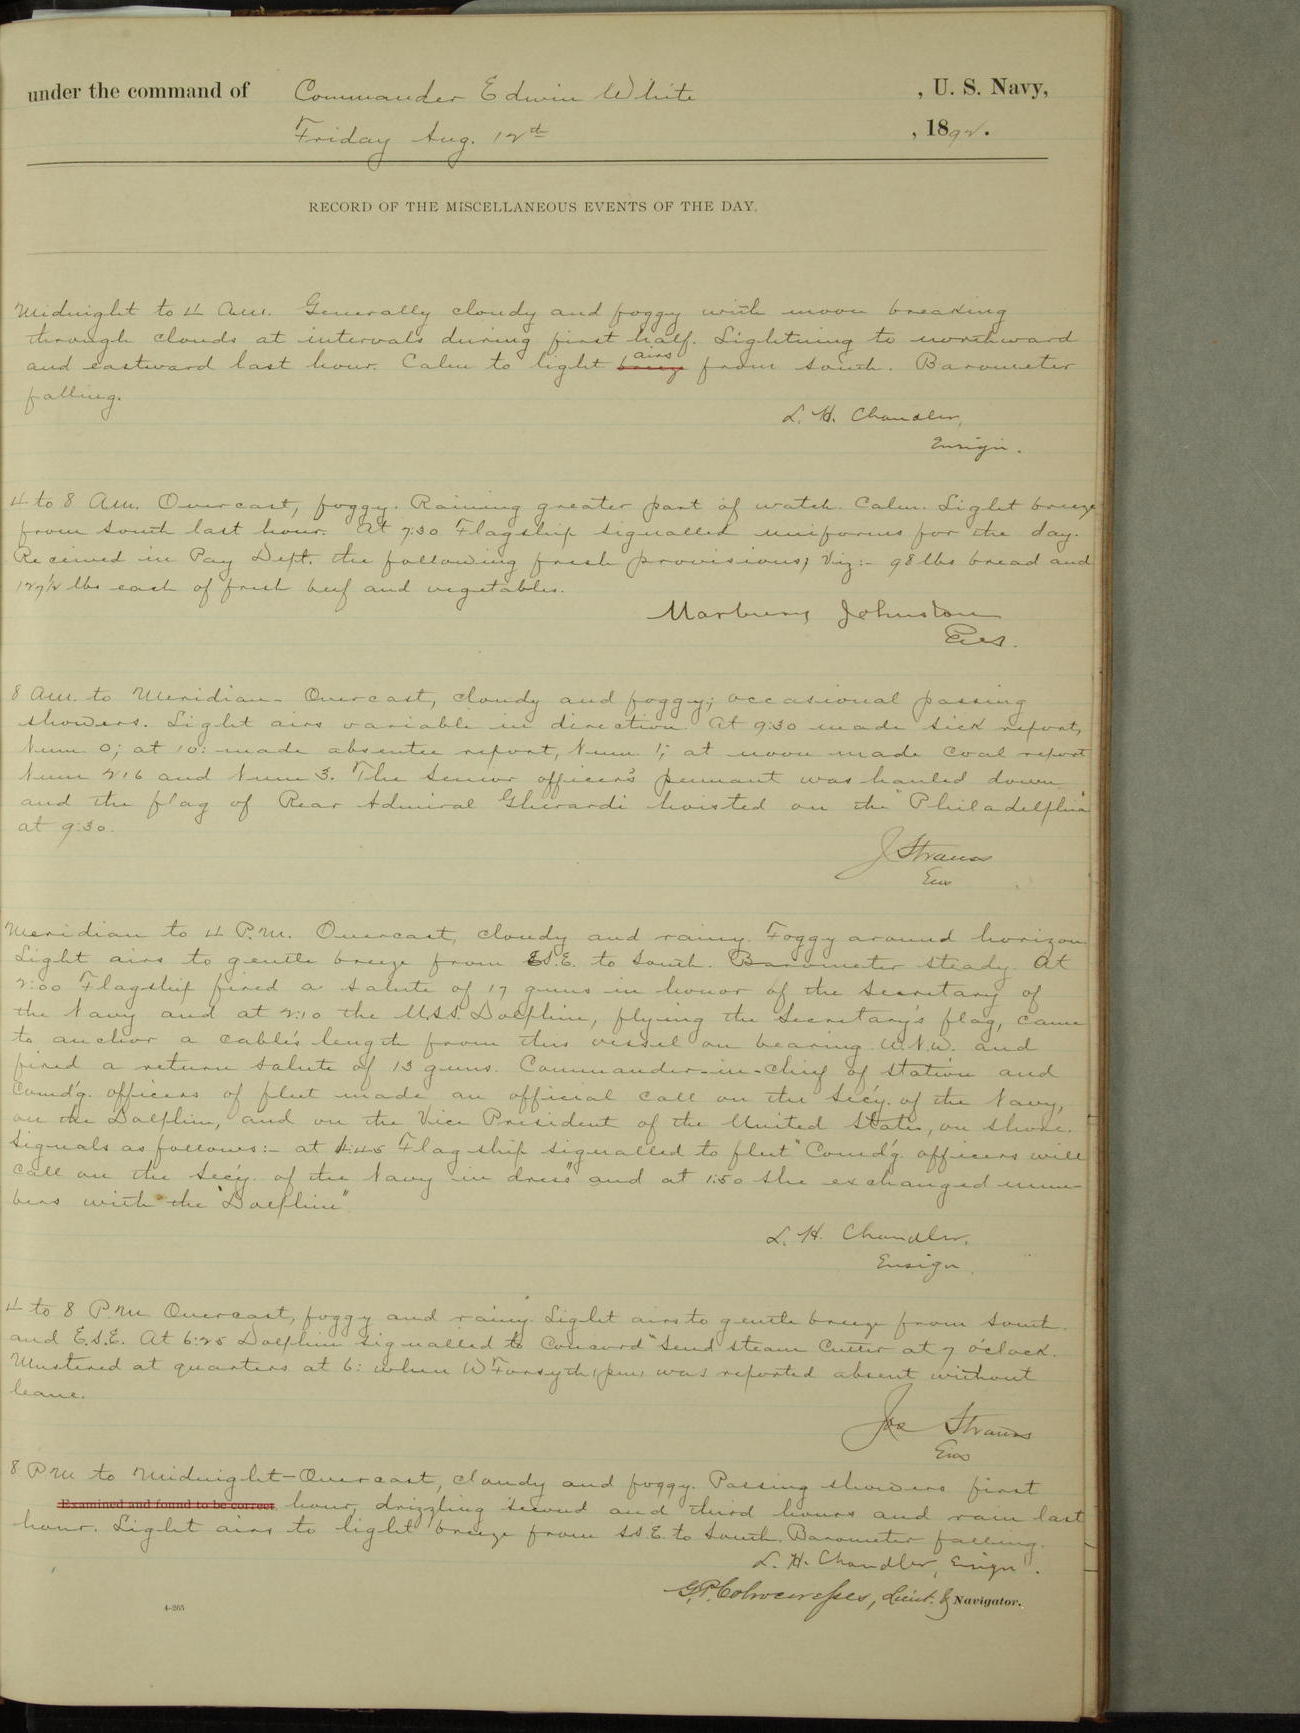 under the command of Commander Edwin White , U. S. Navy,
Friday Aug. 12th , 1892.
RECORD OF THE MISCELLANEOUS EVENTS OF THE DAY.
Midnight to 4 A.M. Generally cloudy and foggy with moon breaking
through clouds at intervals during first half. Lightning to northward
and eastward last hour. Calm to light breeze airs from South. Barometer
falling.
L. H. Chandler,
Ensign.
4 to 8 A.M. Overcast, foggy. Raining greater part of watch. Calm. Light breeze
from South last hour. At 7:30 Flagship signalled uniforms for the day.
Received in Pay Dept. the following fresh provisions; Viz:- 98 lbs bread and
127½ lbs each of fresh beef and vegetables.
Marbury Johnston
Ens.
8 A.M. to Meridian- Overcast, cloudy and foggy; occasional passing
showers. Light airs variable in direction. At 9:30 made sick report,
Num 0; at 10: made absentee report, Num 1; at noon made coal report
Num 216 and Num 3. The Senior officer's pennant was hauled down
and the flag of Rear Admiral Gherardi hoisted on the "Philadelphia"
at 9:30.
J Strauss
Ens
Meridian to 4 P.M. Overcast, cloudy and rainy. Foggy around horizon.
Light airs to gentle breeze from E.S.E. to South. Barometer steady. At
2:00 Flagship fired a salute of 17 guns in honor of the Secretary of
the Navy and at 2:10 the U.S.S. Dolphin, flying the Secretary's flag, came
to anchor a cable's length from this vessel on bearing W.N.W. and
fired a return salute of 13 guns. Commander-in-Chief of station and
Comd'g. officers of fleet made an official call on the Sec'y. of the Navy,
on the Dolphin, and on the Vice President of the United States, on shore.
Signals as follows:- at 1:45 Flagship signalled to fleet "Comd'g. officers will
call on the Sec'y. of the Navy in dress" and at 1:50 she exchanged num-
bers with the "Dolphin".
L. H. Chandler,
Ensign
4 to 8 P.M. Overcast, foggy and rainy. Light airs to gentle breeze from South.
and E.S.E. At 6:25 Dolphin signalled to Concord "Send steam Cutter at 7 o'clock.
Mustered at quarters at 6: when W Forsyth, was reported absent without
leave.
Jos Strauss
Ens
8 P.M to Midnight-Overcast, cloudy and foggy. Passing showers first
Examined and found to be correct. hour, drizzling second and third hours and rain last
hour. Light airs to light breeze from SSE. to South. Barometer falling.
L. H. Chandler, Ensign.
G.P. Colvocoresses, Lieut. & Navigator.
4-265